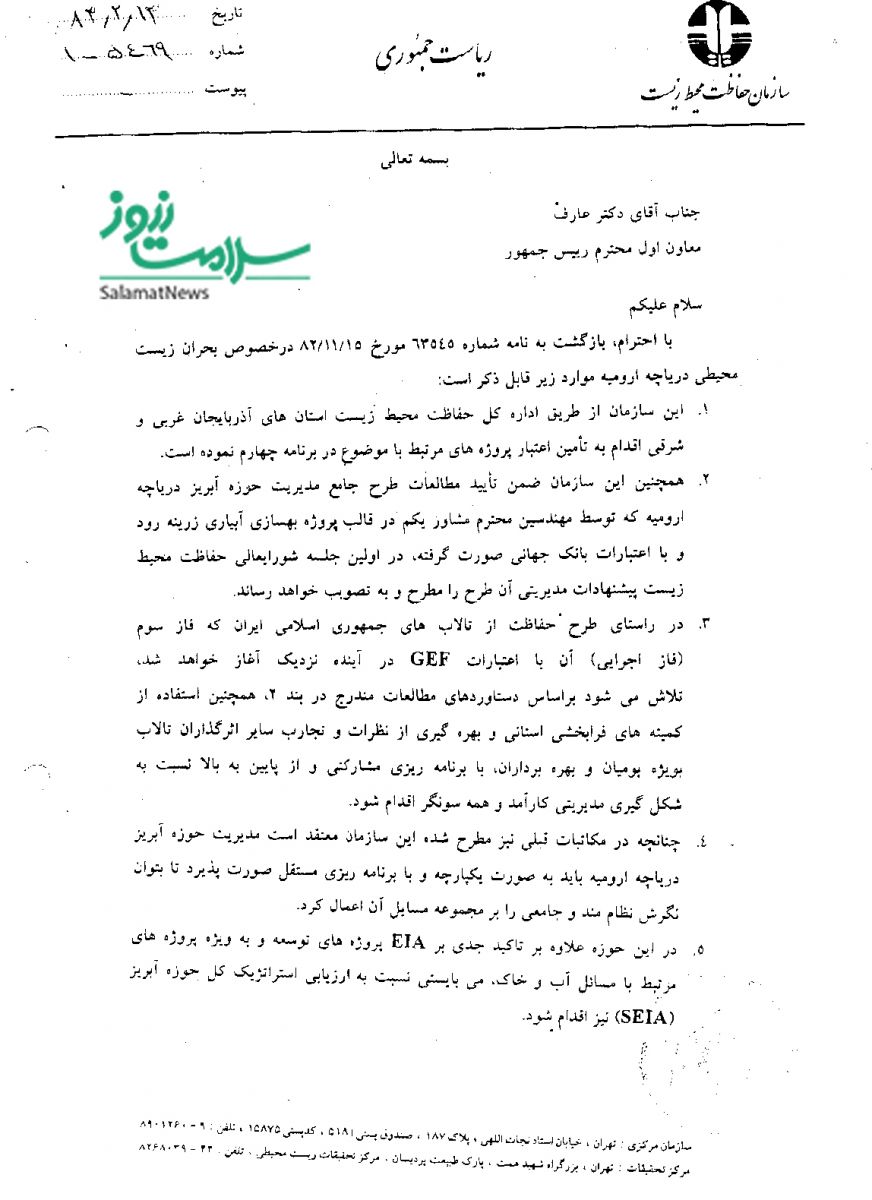 ریاست جمهوری
سازمان حفاظت محیط زیست
تاریخ ۸۳/۲/۱۳
شماره ۱-۵۴۶۹
پیوست
بسمه تعالی
سلامت نیوز
SalamatNews
جناب آقای دکتر عارف
معاون اول محترم رییس جمهور
سلام علیکم
با احترام، بازگشت به نامه شماره ٦٣٥٤٥ مورخ ۸۲/۱۱/۱۵ درخصوص بحران زیست
محیطی دریاچه ارومیه موارد زیر قابل ذکر است:
۱. این سازمان از طریق اداره کل حفاظت محیط زیست استان های آذربایجان غربی و
شرقی اقدام به تأمین اعتبار پروژه های مرتبط با موضوع در برنامه چهارم نموده است.
۲. همچنین این سازمان ضمن تأیید مطالعات طرح جامع مدیریت حوزه آبریز دریاچه
ارومیه که توسط مهندسین محترم مشاور یکم در قالب پروژه بهسازی آبیاری زرینه رود
و با اعتبارات بانک جهانی صورت گرفته، در اولین جلسه شورایعالی حفاظت محیط
زیست پیشنهادات مدیریتی آن طرح را مطرح و به تصویب خواهد رساند.
۳. در راستای طرح حفاظت از تالاب های جمهوری اسلامی ایران که فاز سوم
(فاز اجرایی) آن با اعتبارات GEF در آینده نزدیک آغاز خواهد شد،
تلاش می شود براساس دستاوردهای مطالعات مندرج در بند ۲، همچنین استفاده از
کمیته های فرابخشی استانی و بهره گیری از نظرات و تجارب سایر اثرگذاران تالاب
بویژه بومیان و بهره برداران، با برنامه ریزی مشارکتی و از پایین به بالا نسبت به
شکل گیری مدیریتی کارآمد و همه سونگر اقدام شود.
٤. چنانچه در مکاتبات قبلی نیز مطرح شده این سازمان معتقد است مدیریت حوزه آبریز
دریاچه ارومیه باید به صورت یکپارچه و با برنامه ریزی مستقل صورت پذیرد تا بتوان
نگرش نظام مند و جامعی را بر مجموعه مسایل آن اعمال کرد.
۵. در این حوزه علاوه بر تاکید جدی بر EIA پروژه های توسعه و به ویژه پروژه های
مرتبط با مسائل آب و خاک، می بایستی نسبت به ارزیابی استراتژیک کل حوزه آبریز
(SEIA) نیز اقدام شود.
سازمان مرکزی : تهران ، خیابان استاد نجات اللهی ، پلاک ۱۸۷ ، صندوق پستی ۵۱۸۱ ، کدپستی ۱۵۸۷۵ ، تلفن : ۹ - ۸۹۰۱۲۶۰
مرکز تحقیقات : تهران ، بزرگراه شهید همت ، پارک طبیعت پردیسان ، مرکز تحقیقات زیست محیطی ، تلفن : ۴۳ - ۸۲۶۸۰۳۹